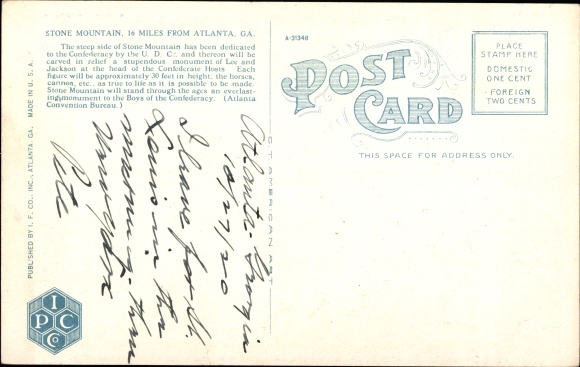 STONE MOUNTAIN, 16 MILES FROM ATLANTA, GA.
The steep side of Stone Mountain has been dedicated
to the Confederacy by the U. D. C., and thereon will be
carved in relief a stupendous monument of Lee and
Jackson at the head of the Confederate Hosts Each
figure will be approximately 30 feet in height, the horses,
cannon, etc. as true to life as it is possible to be made.
Stone Mountain will stand through the ages an everlast-
ing monument to the Boys of the Confederacy. (Atlanta
Convention Bureau.)
A-31348
POST
CARD
PLACE
STAMP HERE
DOMESTIC
ONE CENT
FOREIGN
TWO CENTS
THIS SPACE FOR ADDRESS ONLY.
Atlanta-Georgia
10/27/20
I leave for St.
Louis in the
morning-then
New York
Pete
PUBLISHED BY I. F. CO., INC., ATLANTA, GA. MADE IN U. S. A.
AMERICAN ART
I
P C
Co